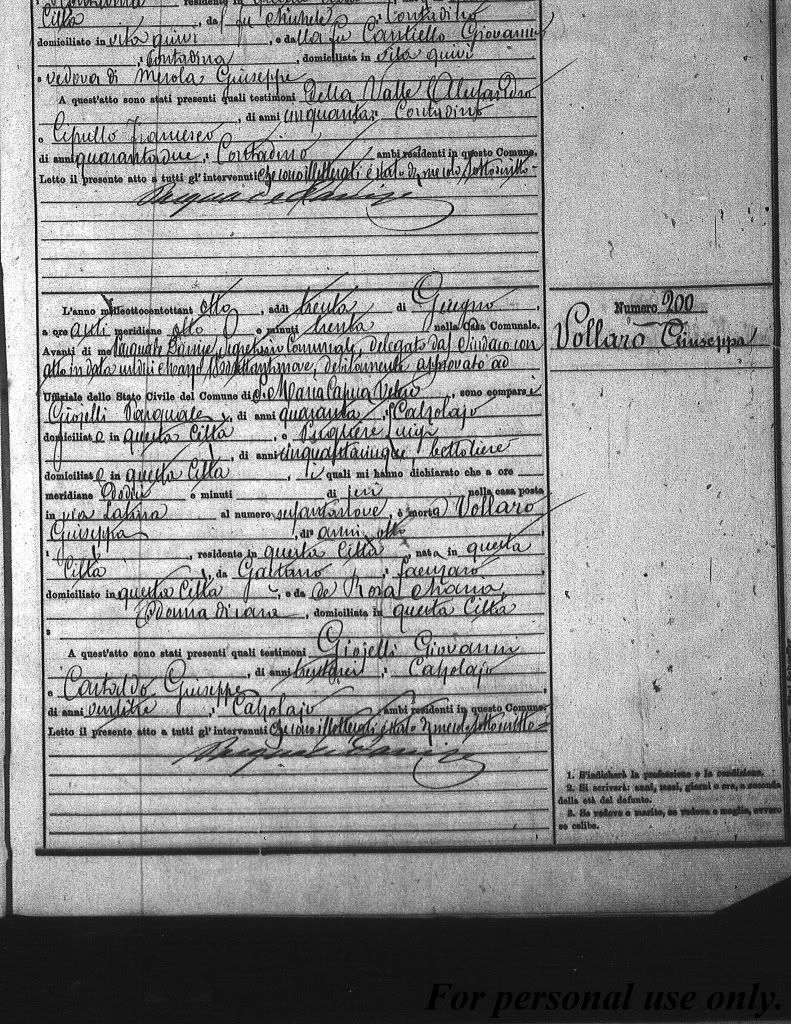 Città, da fu Michele, Contadino
domiciliato in vita quivi, e dalla fu Cantiello Giovanna
, contadina, domiciliata in vita quivi
e vedova di Merola Giuseppe
A quest'atto sono stati presenti quali testimoni Della Valle Alessandro
, di anni cinquanta, Contadino
e Cipullo Francesco
di anni quarantadue, Contadino ambi residenti in questo Comune.
Letto il presente atto a tutti gl'intervenuti che sono illetterati è stato da me solo sottoscritto
Numero 200
Vollaro Giuseppa
L'anno milleottocentottant otto, addì trenta di Giugno
a ore anti meridiane otto e minuti trenta, nella Casa Comunale.
Avanti di me Pasquale segretario Comunale, delegato dal Sindaco con
atto in data debitamente approvato ad
Uffiziale dello Stato Civile del Comune di S. Maria Capua Vetere, sono comparsi
Giojelli Pasquale, di anni quaranta, Calzolajo
domiciliato in questa Città, e Luigi
, di anni cinquantacinque, bettoliere
domiciliato in questa Città, i quali mi hanno dichiarato che a ore
meridiane dodici e minuti di jeri, nella casa posta
in via Latina al numero settantanove, è morta Vollaro
Giuseppa, di anni otto
, residente in questa Città, nata in questa
Città, da Gaetano,
domiciliato in questa Città, e da De Rosa Maria
donna di casa, domiciliata in questa Città
A quest'atto sono stati presenti quali testimoni Giojelli Giovanni
, di anni trentasei, Calzolajo
e Castaldo Giuseppe
di anni ventitre, Calzolajo, ambi residenti in questo Comune.
Letto il presente atto a tutti gl'intervenuti che sono illetterati è stato da me solo sottoscritto
1. S'indicherà la professione o la condizione.
2. Si scriverà: anni, mesi, giorni o ore, a seconda
della età del defunto.
3. Se vedovo o marito, se vedova o moglie, ovvero
se celibe.
For personal use only.